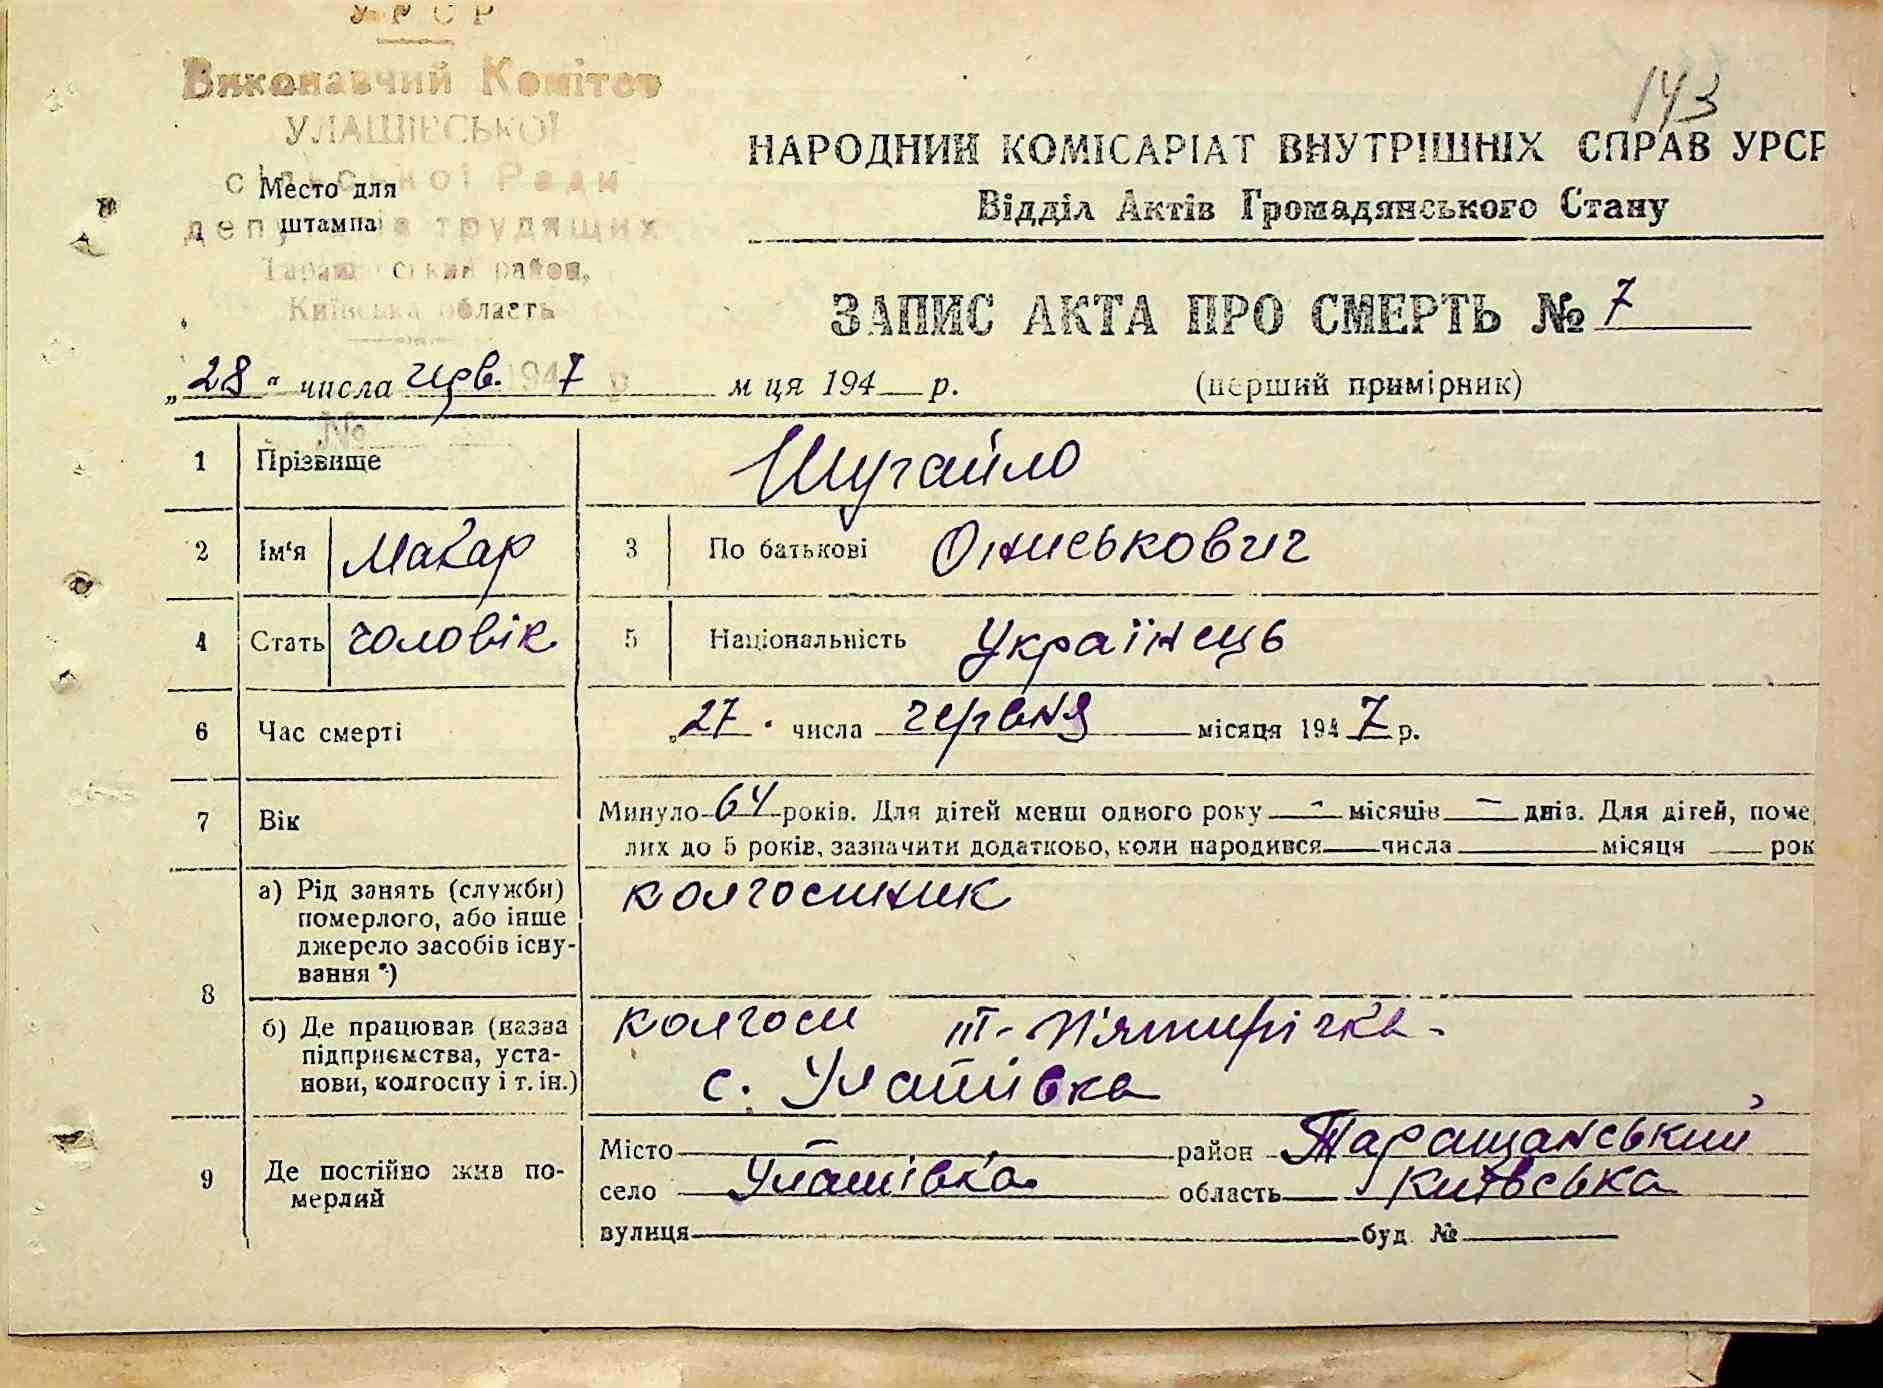 УРСР
Виконавчий Комітет
УЛАШІВСЬКОЇ
сільської Ради
депутатів трудящих
Таращанський район,
Київська область
143
Место для
штампа
НАРОДНИЙ КОМІСАРІАТ ВНУТРІШНІХ СПРАВ УРСР
Відділ Актів Громадянського Стану
ЗАПИС АКТА ПРО СМЕРТЬ № 7
„28“ числа черв. 1947 р м ця 194 р. (перший примірник)
№
1 Прізвище Шугайло
2 Ім'я Макар 3 По батькові Ониськович
4 Стать чоловік 5 Національність Українець
6 Час смерті „27. числа червня місяця 1947 р.
7 Вік Минуло 64 років. Для дітей менш одного року - місяців - днів. Для дітей, поме
лих до 5 років, зазначити додатково, коли народився числа місяця рок
8 а) Рід занять (служби)
померлого, або інше
джерело засобів існу-
вання *) колгоспник
б) Де працював (назва
підприємства, уста-
нови, колгоспу і т. ін.) колгосп ІІІ-П'ятирічка-
с. Улашівка
9 Де постійно жив по-
мерлий Місто — район Таращанський
село Улашівка область Київська
вулиця буд №